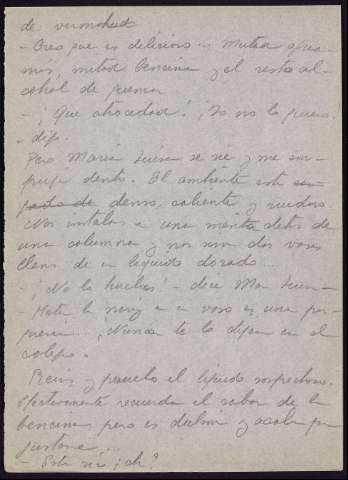 de vermohut
- Creo que es delicioso... mitad
mis, mitad bencina y el resto al-
cohol de quemar.
- ¡Que atrocidad! ¡Yo no lo quiero!
- digo.
Pero María Luisa se rie y me em-
puja dentro. El ambiente está
denso, caliente y ruidoso
Nos instalan a una mesita detrás de
una columna y nos sirven dos vasos
llenos de un líquido dorado...
- ¡No lo huelas! - dice María Luisa -
Meter la nariz en un vaso es una por-
quería... ¿Nunca te lo dijeron en el
colegio.
Reimos y pruebo el líquido sospechoso.
Efectivamente recuerda el sabor de la
bencina, pero es dulzón y acaba por
gustarme...
- Está rico ¡eh?